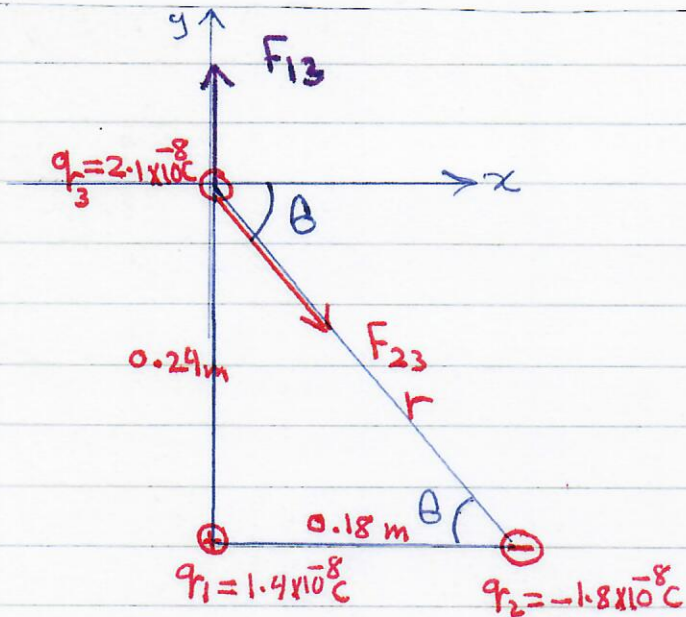 y
F₁₃
q₃=2.1×10⁻⁸C
x
θ
0.24m
F₂₃
r
θ
0.18 m
q₁=1.4×10⁻⁸C
q₂=-1.8×10⁻⁸C